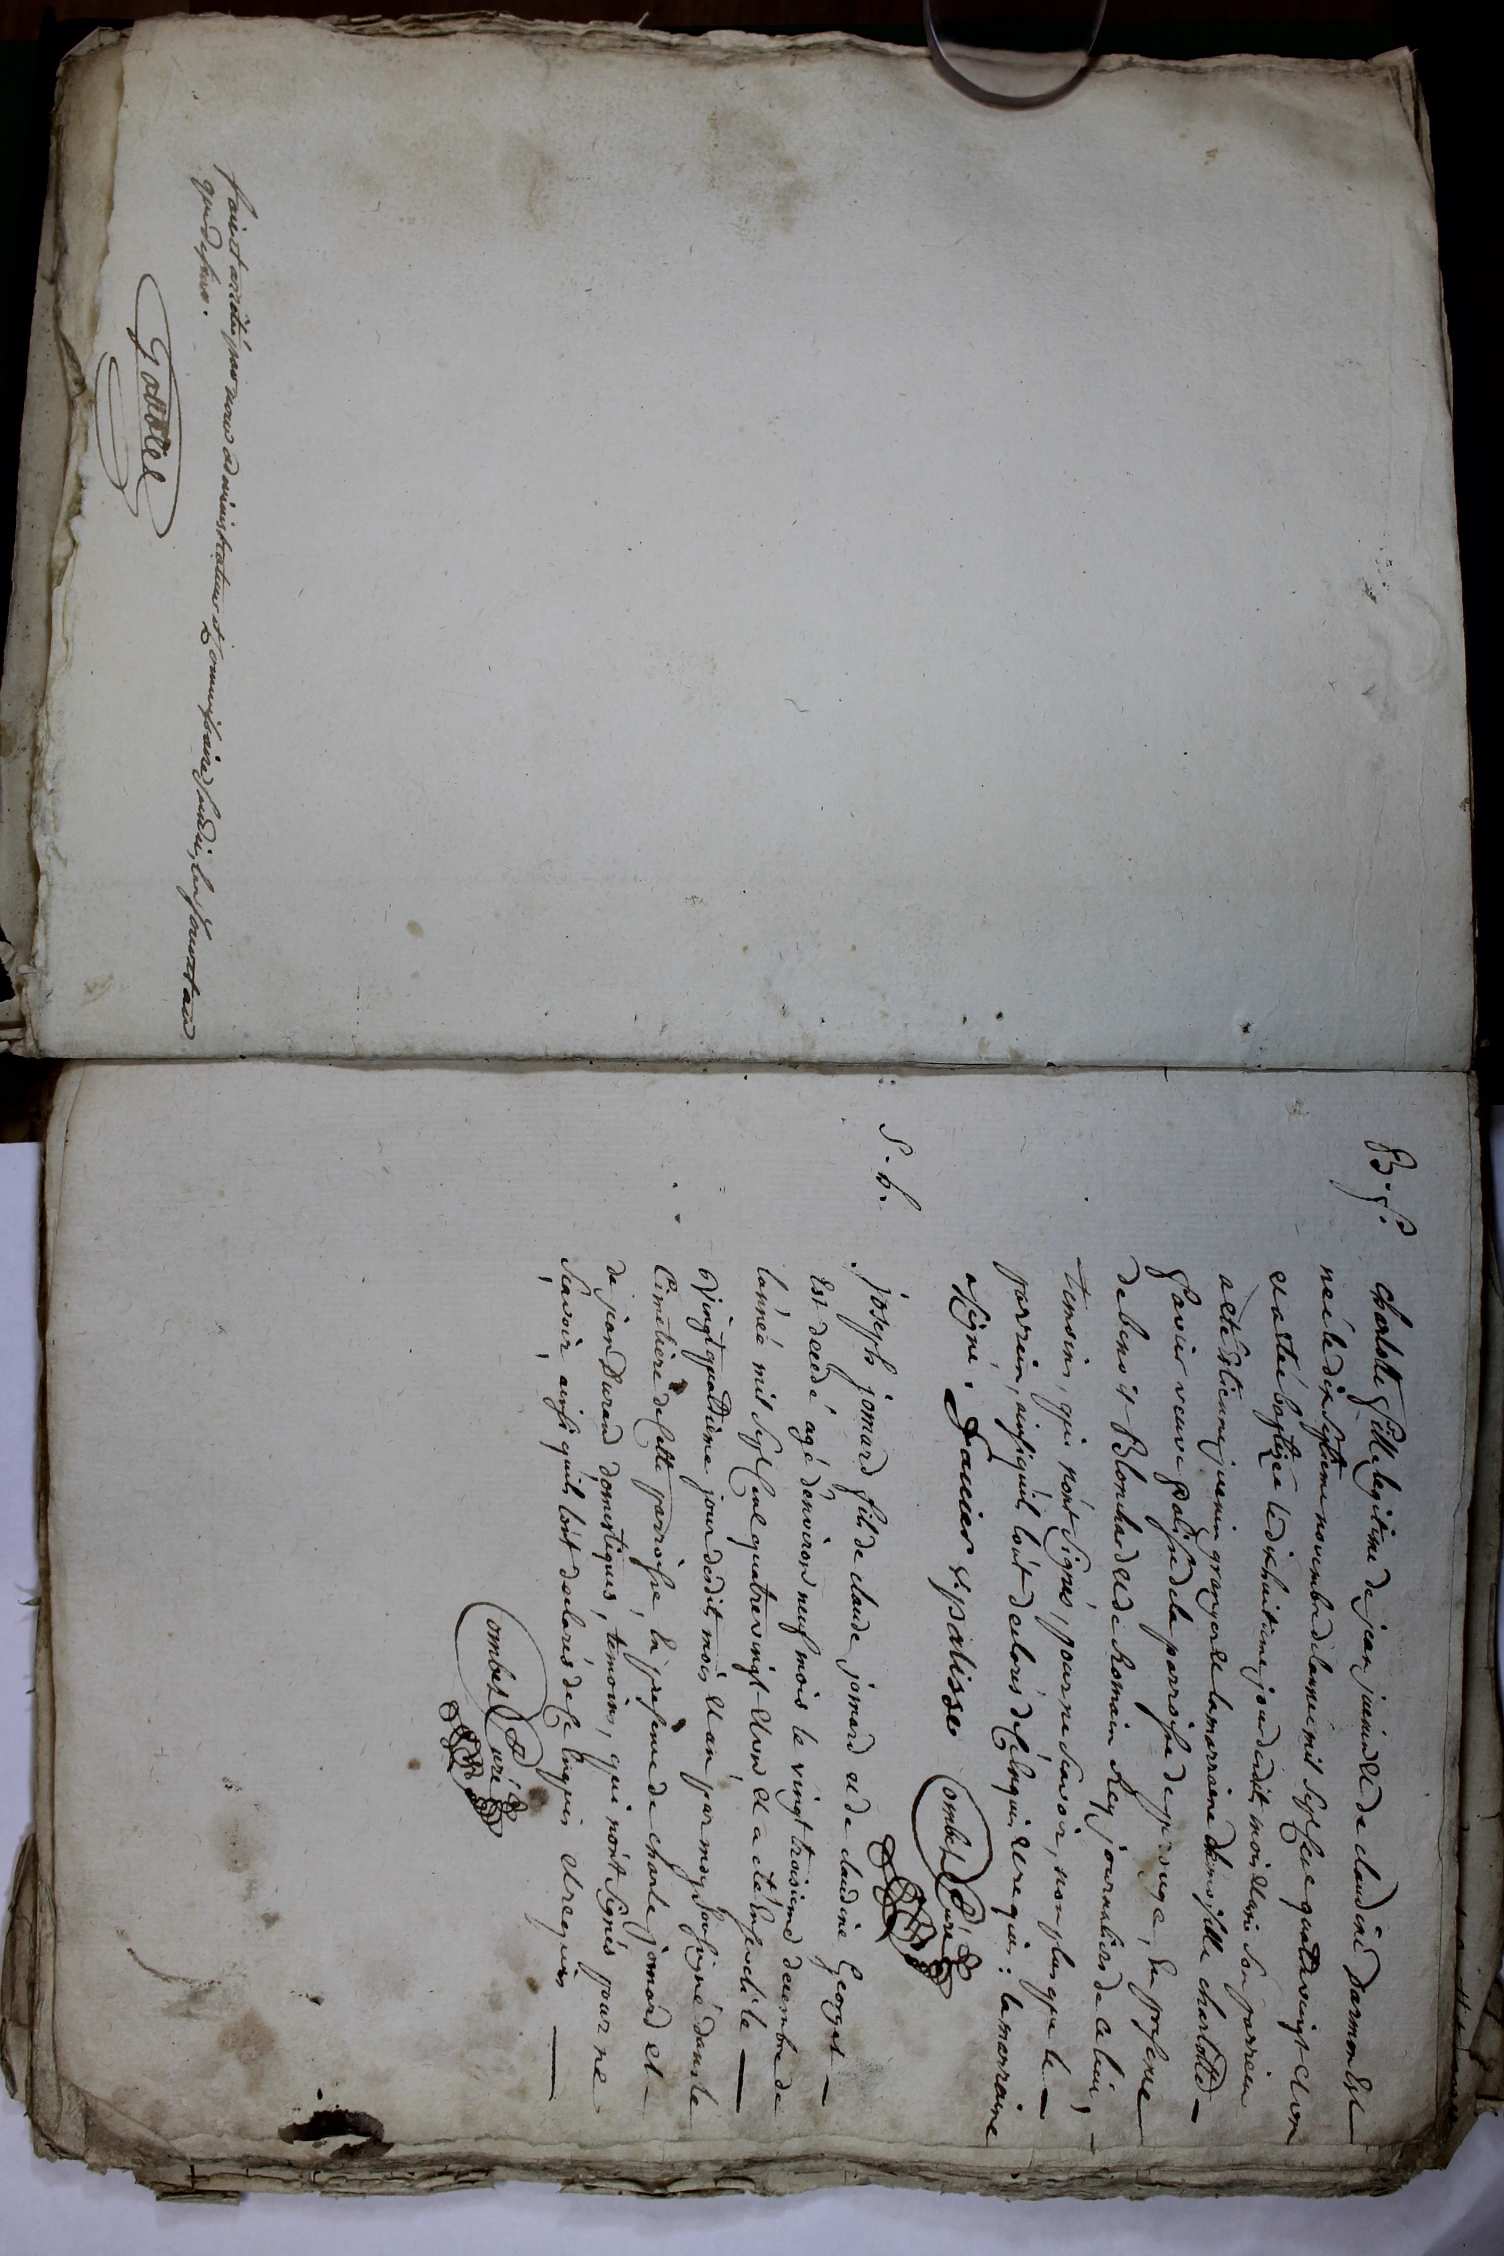 fait et arrêté par nous administrateur et commissaire susdit, les jour et an
que dessus.
Gobbel
B. f.
charlotte fille legitime de jean juenin et de claudine Darmon Est
neé le dix septieme novembre de lanneé mil sept cent quatrevingt et un
et a eteé baptizeé le dixhuitieme jour desdits mois et an: son parrein
a eté Etienne juenin granger et la marraine demoiselle charlotte —
favier veuve palisse de la parroisse de en presence
de benoit Blonchard et de Romain Rey journaliers de ce lieu, —
temoins, qui n'ont signés, pour ne scavoir, non plus que le —
parrein, ainsi quils l'ont declarés de ce Enquis et requis: la marraine
a signé. favier v. palisse Combet Curé
S. b.
joseph jomard fils de claude jomard et de claudine Georget —
Est decedé agé d'environ neuf mois le vingt troisieme decembre de
lanneé mil sept cent quatrevingt et un et a eté Enseveli le —
vingt quatrieme jour desdits mois et an par moy soussigné dans le
Cimetiere de Cette parroisse, En presence de charle jomard et —
de jean Durand domestiques, temoins, qui n'ont signés pour ne
scavoir ainsi quils l'ont declarés de ce Enquis et requis —
Combet Curé